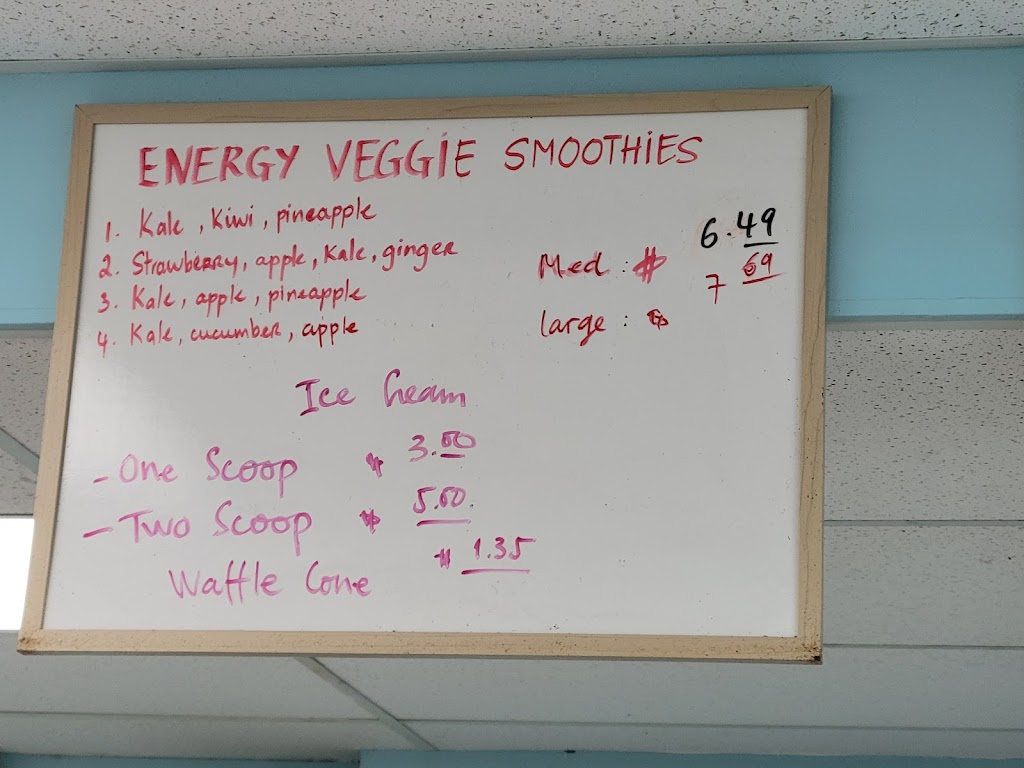 ENERGY VEGGIE SMOOTHIES
1. Kale, Kiwi, pineapple
2. Strawberry, apple, Kale, ginger
3. Kale, apple, pineapple
4. Kale, cucumber, apple
Med : $ 6.49
large : $ 7 69
Ice Cream
- One Scoop $ 3.00
- Two Scoop $ 5.00
Waffle Cone $ 1.35